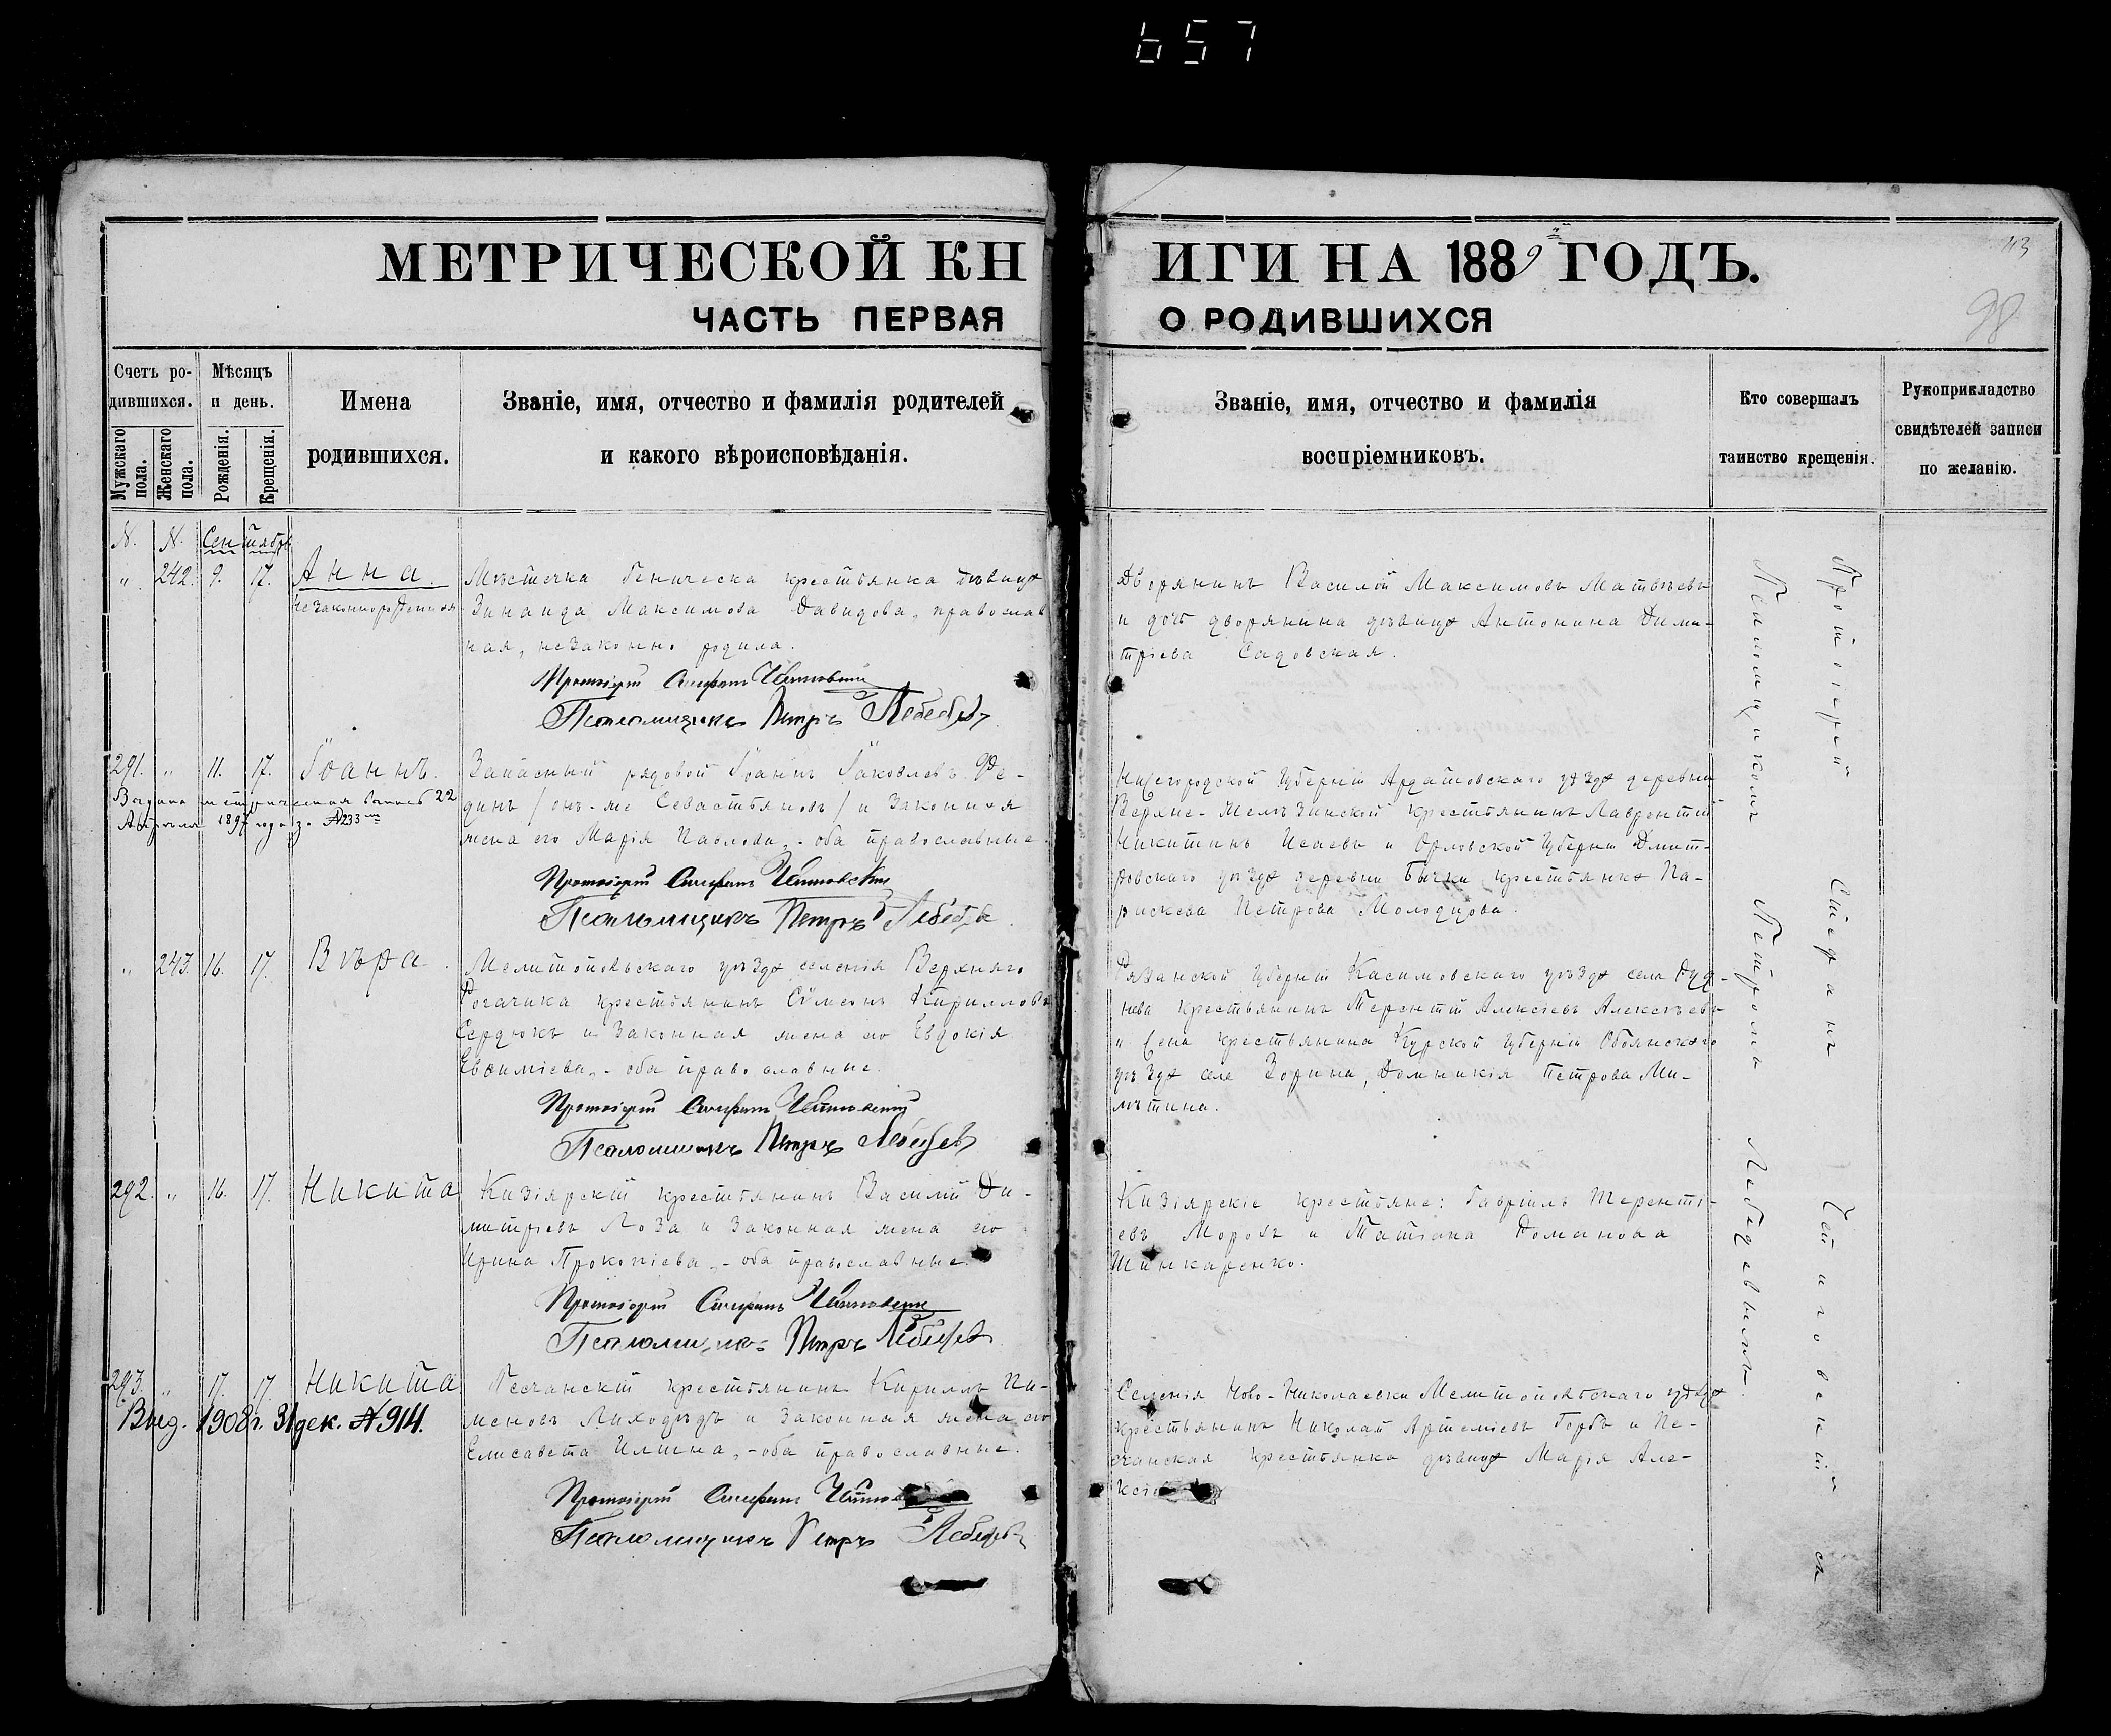 657
МЕТРИЧЕСКОЙ КНИГИ НА 1889 ГОДЪ.
ЧАСТЬ ПЕРВАЯ О РОДИВШИХСЯ
98
Счетъ ро-
дившихся.
Мужскаго пола.
Женскаго пола.
Мѣсяцъ
и день.
Рожденія.
Крещенія.
Имена
родившихся.
Званіе, имя, отчество и фамилія родителей
и какого вѣроисповѣданія.
Званіе, имя, отчество и фамилія
воспріемниковъ.
Кто совершалъ
таинство крещенія.
Рукоприкладство
свидѣтелей записи
по желанію.
N. N. Сентябрь
" 242. 9. 17. Анна.
незаконнорожденная
Мѣстечка Геническа крестьянка дѣвица
Зинаида Максимова Давидова, православ
ная, незаконно родила.
Протоіерей Стефанъ
Псаломщикъ Петръ Лебедевъ
Дворянинъ Василій Максимовъ Матвѣевъ
и дочь дворянина дѣвица Антонина Дими-
тріева Садовская.
291. " 11. 17. Іоаннъ.
Выдана метрическая выпись 22
Апрѣля 1897 года за №233
Запасный рядовой Іоаннъ Іаковлевъ Фе-
динъ /онъ-же Севастьяновъ/ и законная
жена его Марія Павлова, - оба православные.
Протоіерей Стефанъ
Псаломщикъ Петръ Лебедевъ
Нижегородской губерніи Ардатовскаго уѣзда деревни
крестьянинъ Лаврентій
Никитинъ Исаевъ и Орловской губерніи Дмит-
ровскаго уѣзда деревни Бычки крестьянка Па-
раскева Петрова Молодцова.
" 243. 16. 17. Вѣра.
Мелитопольскаго уѣзда селенія Верхняго
Рогачика крестьянинъ Сѵмеонъ Кирилловъ
Сердюкъ и законная жена его Евдокія
Евѳиміева, - оба православные.
Протоіерей Стефанъ
Псаломщикъ Петръ Лебедевъ
Рязанской губерніи Касимовскаго уѣзда села
крестьянинъ Терентій Алексіевъ Алексѣевъ
и крестьянина Курской губерніи Обоянскаго
уѣзда села Зорина, Домникія Петрова Ми-
лѣтина.
292. " 16. 17. Никита
Кизіярскій крестьянинъ Василій Ди-
митріевъ Лоза и законная жена его
Ирина Прокопіева, - оба православные.
Протоіерей Стефанъ
Псаломщикъ Петръ Лебедевъ
Кизіярскіе крестьяне: Гавріилъ Теренті-
евъ Морозъ и Татіана Доманова
Шинкаренко.
293. " 17. 17. Никита
Выд. 1908 г. 31 дек. №914.
Песчанскій крестьянинъ Кириллъ Пи-
меновъ Лиходѣдъ и законная жена его
Елисавета Илиина, - оба православные.
Протоіерей Стефанъ
Псаломщикъ Петръ Лебедевъ
Селенія Ново-Николаевки Мелитопольскаго уѣзда
крестьянинъ Николай Артеміевъ Горбъ и Пе-
счанская крестьянка дѣвица Марія Але-
Протоіерей Стефанъ съ
Псаломщикомъ Петромъ Лебедевымъ.